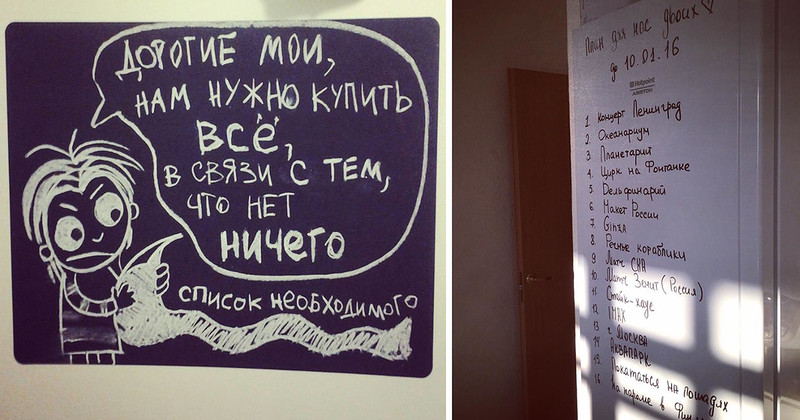 ДОРОГИЕ МОИ,
НАМ НУЖНО КУПИТЬ
ВСЁ,
В СВЯЗИ С ТЕМ,
ЧТО НЕТ
НИЧЕГО
СПИСОК НЕОБХОДИМОГО
План для нас двоих
до 10.01.16
Hotpoint
ARISTON
1 Концерт Ленинград
2. Океанариум
3 Планетарий
4. Цирк на Фонтанке
5. Дельфинарий
6. Макет России
7. Ginza
8 Речные кораблики
9 Матч СКА
10. Матч Зенит (Россия)
11 Стейк-хаус
12 IMAX
13 г. МОСКВА
14 АКВАПАРК
15. Покататься на лошадях
16 На пароме в